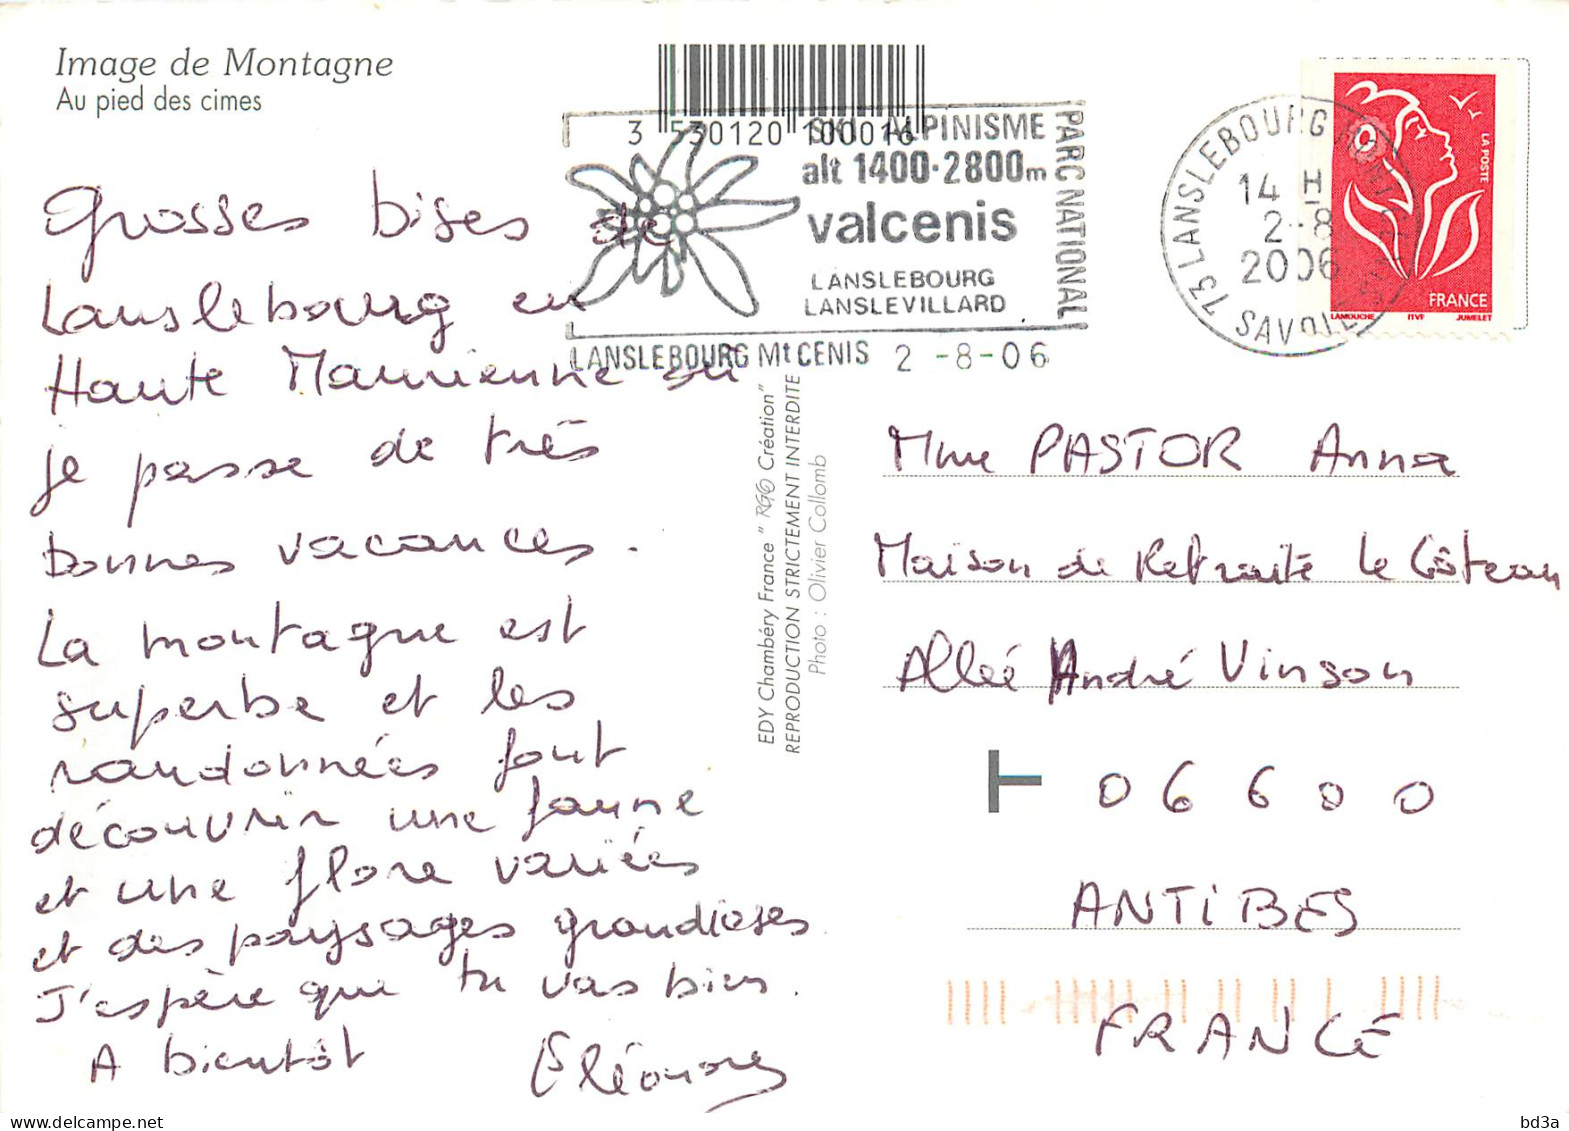 Image de Montagne
Au pied des cimes
3 530120 100016
SKI ALPINISME
alt 1400-2800m
valcenis
LANSLEBOURG
LANSLEVILLARD
PARC NATIONAL
LANSLEBOURG Mt CENIS 2 -8-06
73 LANSLEBOURG MONT CENIS
14 H
2--8
2006
SAVOIE
LA POSTE
FRANCE
LAMOUCHE ITVF JUMELET
Grosses bises de
Lanslebourg en
Haute Maurienne où
je passe de très
bonnes vacances.
La montagne est
superbe et les
randonnées font
découvrir une faune
et une flore variées
et des paysages grandioses.
J'espère que tu vas bien.
A bientôt Eléonore
EDY Chambéry France " RGO Création"
REPRODUCTION STRICTEMENT INTERDITE
Photo : Olivier Collomb
Mme PASTOR Anna
Maison de Retraite le Côteau
Allée André Vinson
06600
ANTIBES
FRANCE
bd3a